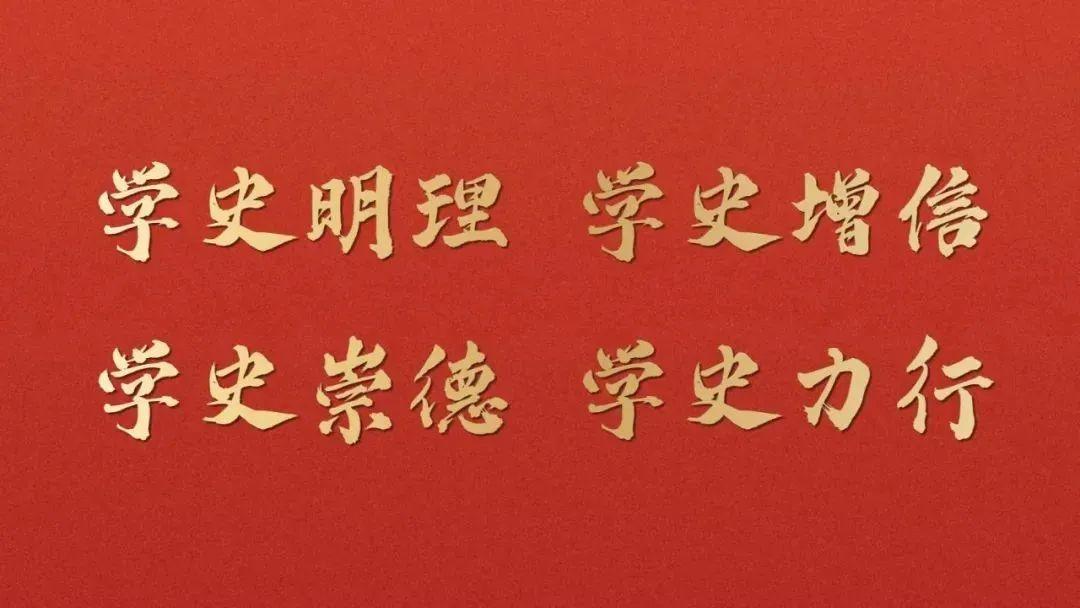 学史明理 学史增信
学史崇德 学史力行